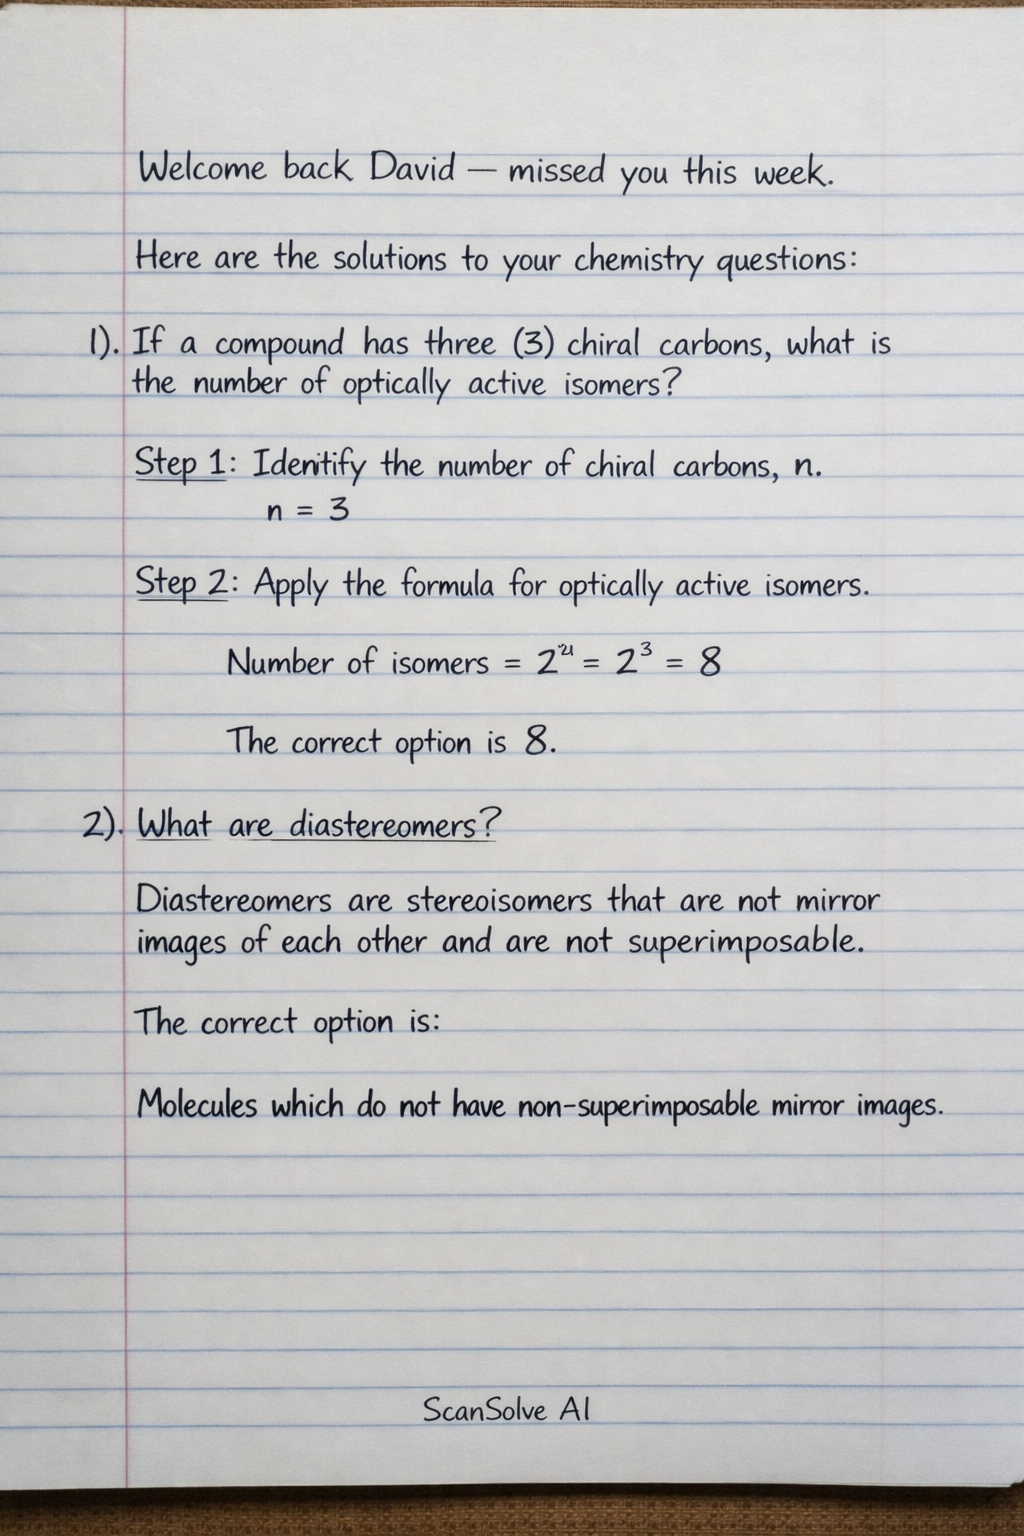 Welcome back David — missed you this week.
Here are the solutions to your chemistry questions:
1). If a compound has three (3) chiral carbons, what is
the number of optically active isomers?
Step 1: Identify the number of chiral carbons, n.
n = 3
Step 2: Apply the formula for optically active isomers.
Number of isomers = 2 = 2³ = 8
The correct option is 8.
2). What are diastereomers?
Diastereomers are stereoisomers that are not mirror
images of each other and are not superimposable.
The correct option is:
Molecules which do not have non-superimposable mirror images.
ScanSolve AI